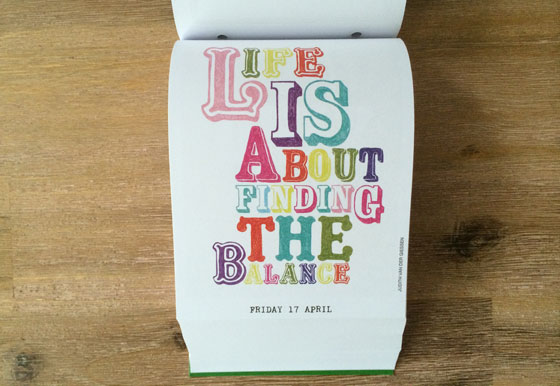 LIFE
IS
ABOUT
FINDING
THE
BALANCE
FRIDAY 17 APRIL
JUDITH VAN DER GIESSEN